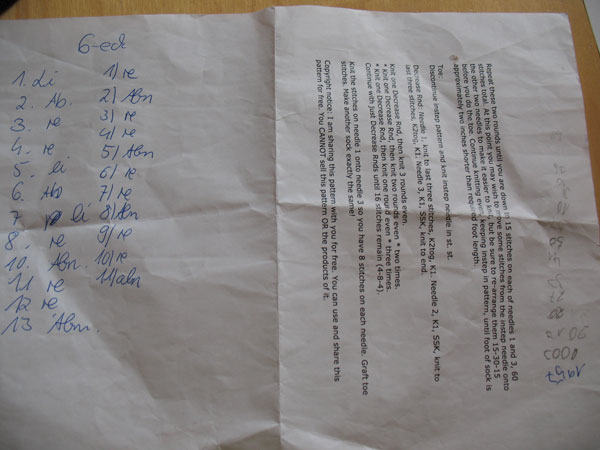 6-eck
1. li
2. Ab.
3. re
4. re
5. li
6. Ab
7. li
8. re
10. Abn.
11 re
12 re
13 Abn.
1) re
2) Abn
3) re
4) re
5) Abn
6) re
7) re
8) Abn
9) re
10) re
11) abn
Repeat these two rounds until you are down to 15 stitches on each of needles 1 and 3, 60
stitches total. At this point you may wish to move some stitches from the instep needle onto
the other two needles to make it easier to knit, but be sure to re-arrange them 15-30-15
before you do the toe. Continue knitting even, keeping instep in pattern, until foot of sock is
approximately two inches shorter than required foot length.
Toe:
Discontinue instep pattern and knit instep needle in st. st.
Decrease Rnd: Needle 1, knit to last three stitches, K2tog, K1. Needle 2, K1, SSK, knit to
last three stitches, K2tog, K1. Needle 3, K1, SSK, knit to end.
Knit one Decrease Rnd, then knit 3 rounds even.
* Knit one Decrease Rnd, then knit two rounds even * two times.
* Knit one Decrease Rnd, then knit one round even * three times.
Continue with just Decrease Rnds until 16 stitches remain (4-8-4).
Knit the stitches on needle 1 onto needle 3 so you have 8 stitches on each needle. Graft toe
stitches. Make another sock exactly the same!
Copyright notice: I am sharing this pattern with you for free. You can use and share this
pattern for free. You CANNOT sell this pattern OR the products of it.